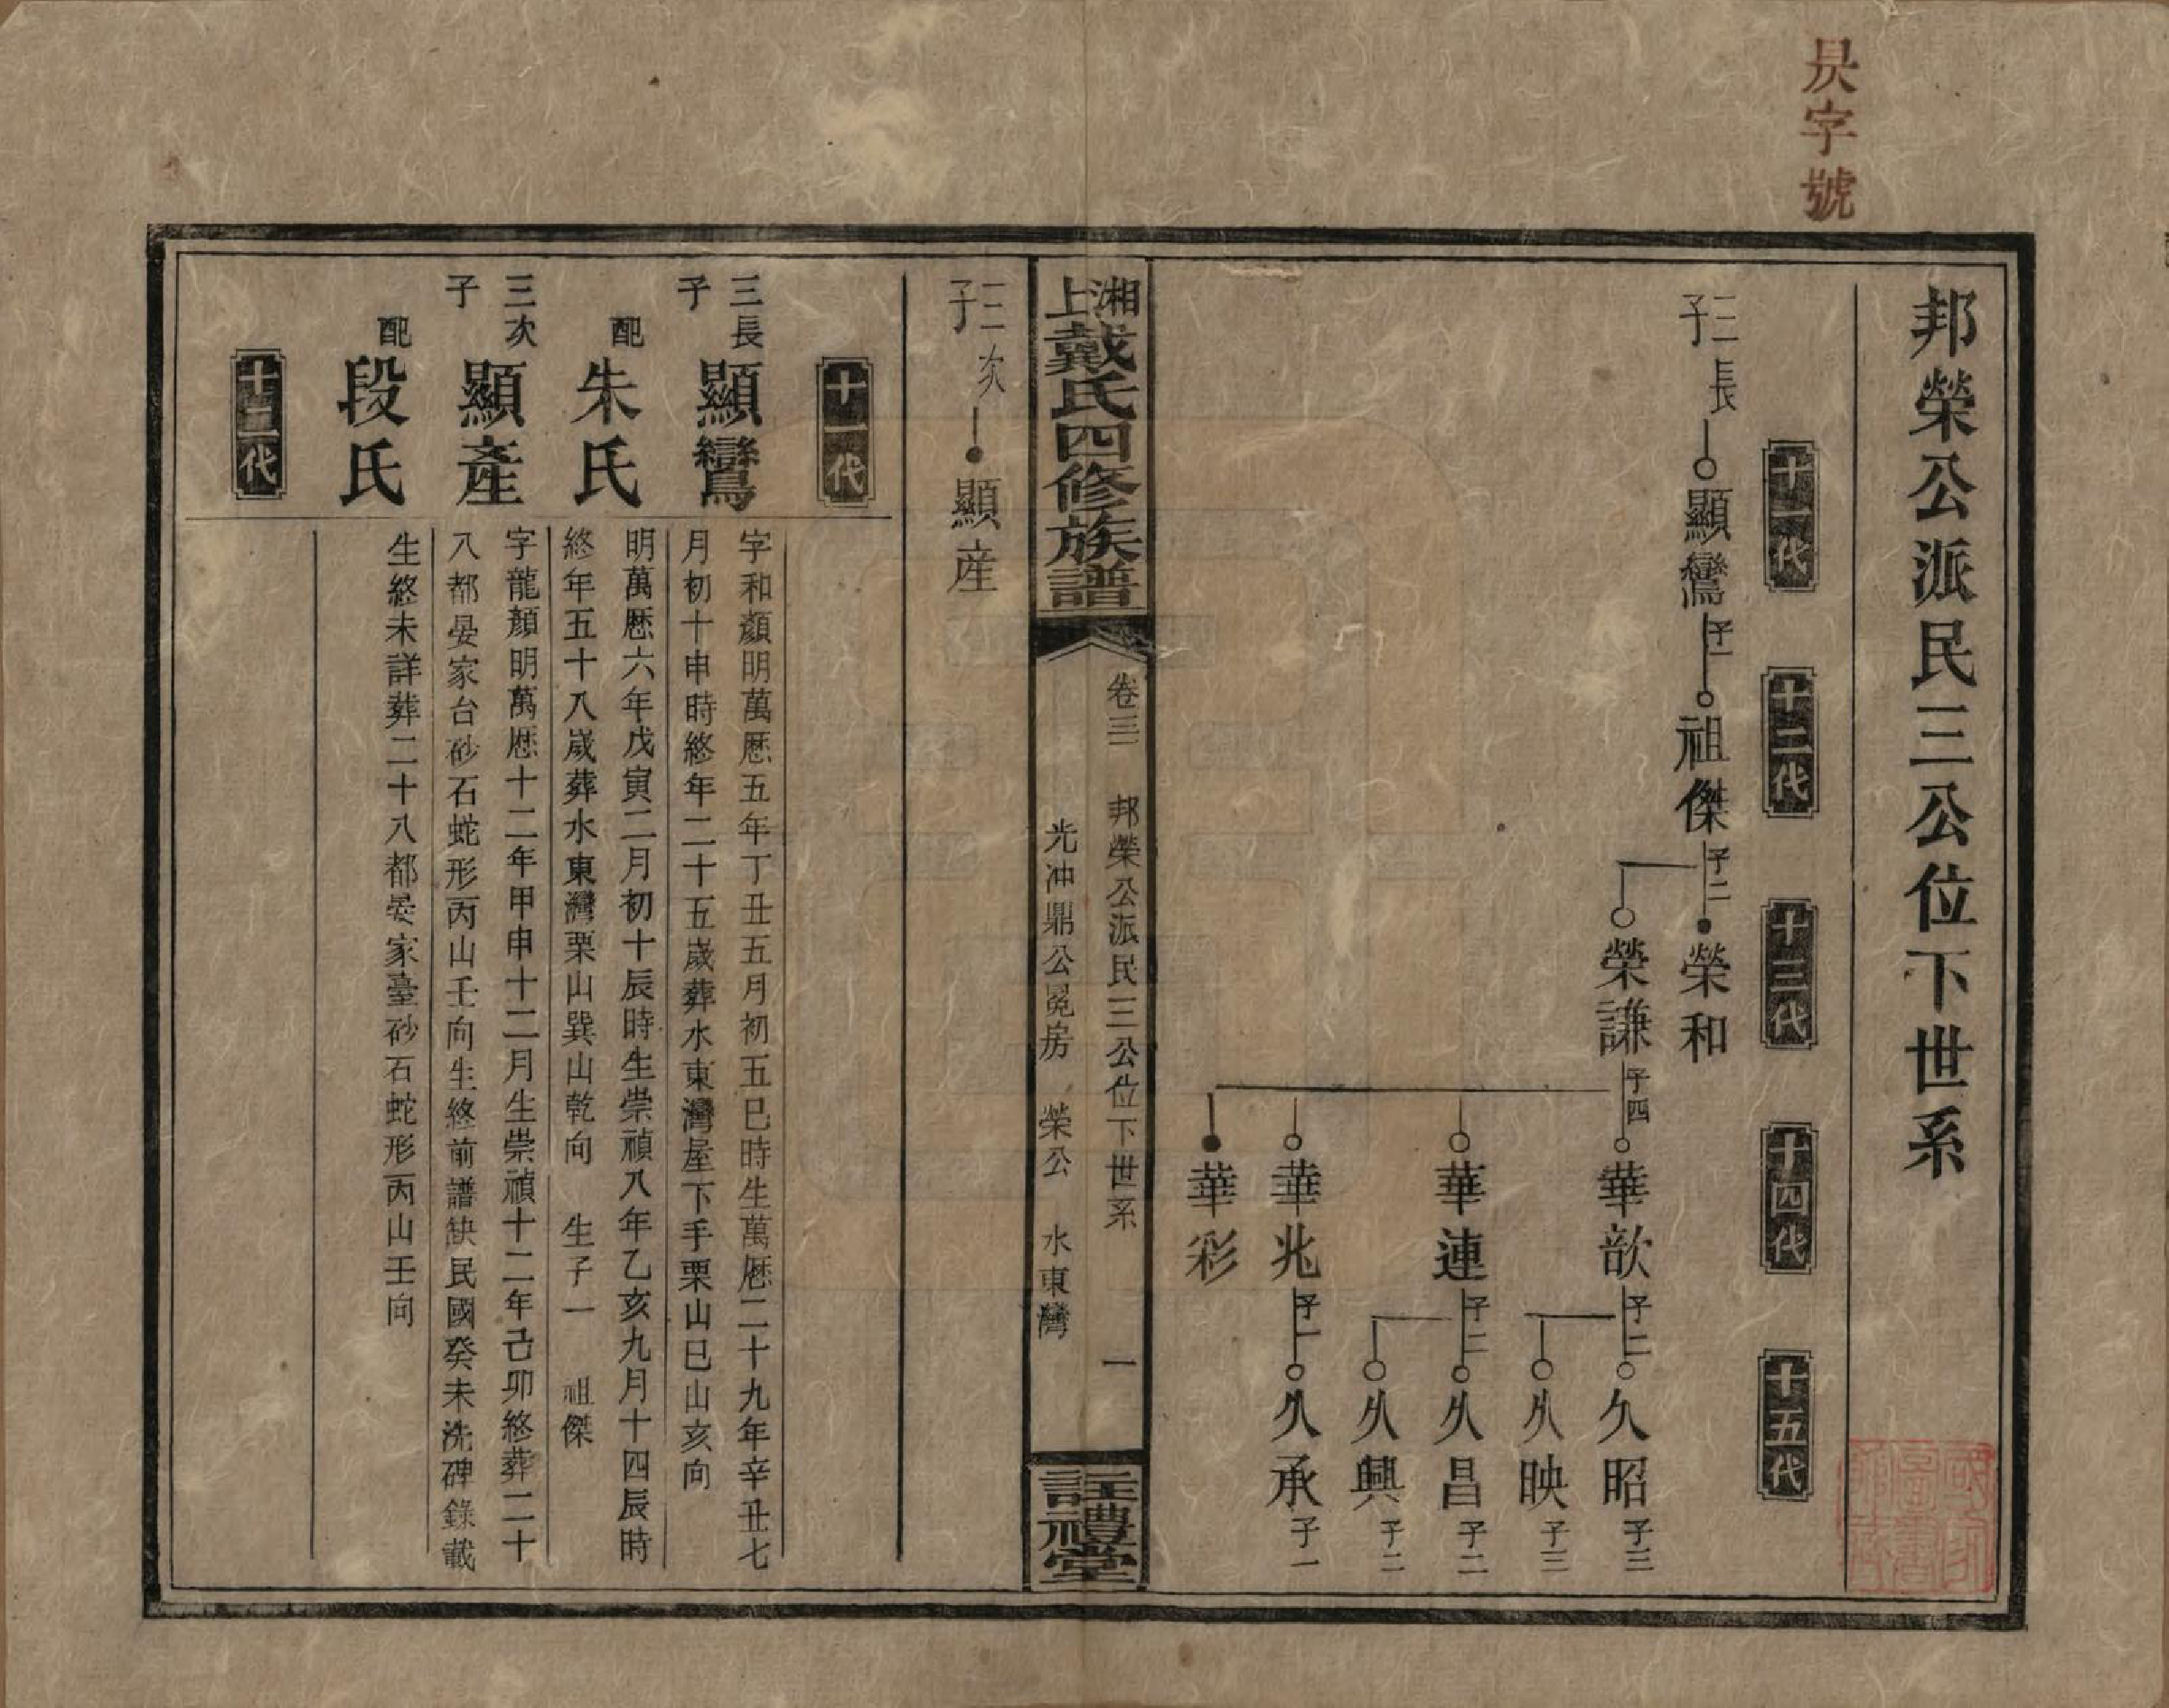 昃字號
邦榮公派民三公位下世系
十一代
十二代
十三代
十四代
十五代
三長子
顯鸞
子一
祖傑
子二
榮和
榮謙
子四
華歆
子二
久昭
子三
久映
子三
華連
子二
久昌
子二
久興
子二
華兆
子一
久承
子一
華彩
湘上戴氏四修族譜
卷三 邦榮公派民三公位下世系 一
光冲鼎公冕房 榮公 水東灣
註禮堂
三次子
顯産
十一代
三長子
顯鸞
字和顏明萬厯五年丁丑五月初五巳時生萬厯二十九年辛丑七
月初十申時終年二十五歲葬水東灣屋下手栗山巳山亥向
配
朱氏
明萬厯六年戊寅二月初十辰時生崇禎八年乙亥九月十四辰時
終年五十八歲葬水東灣栗山巽山乾向 生子一 祖傑
三次子
顯產
字龍顏明萬厯十二年甲申十二月生崇禎十二年己卯終葬二十
八都晏家台砂石蛇形丙山壬向生終前譜缺民國癸未洗碑錄載
配
段氏
生終未詳葬二十八都晏家臺砂石蛇形丙山壬向
十二代